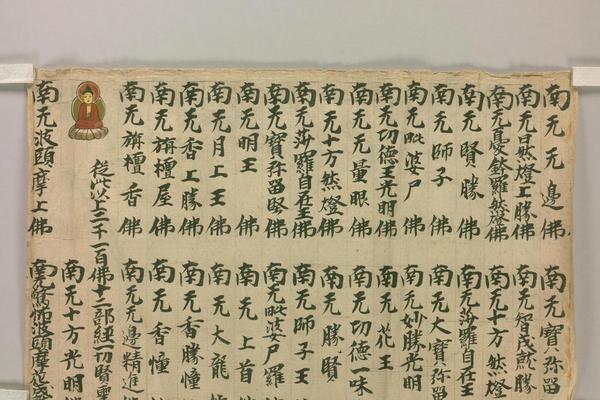 南无无邊佛
南无日然燈上勝佛
南无曼鉢羅然燈佛
南无賢勝佛
南无師子佛
南无毗婆尸佛
南无功德王光明佛
南无无量眼佛
南无十方然燈佛
南无莎羅自在王佛
南无寶弥留堅佛
南无明王佛
南无月上王佛
南无香上勝佛
南无旃檀屋佛
南无旃檀香佛
從此以上二千一百佛十二部經一切賢聖
南无波頭摩上佛
南无寶弥留
南无智成就勝
南无十方然燈
南无莎羅自在王
南无大寶弥留
南无妙勝光明
南无花王
南无功德一味
南无勝賢
南无師子王
南无毗婆尸羅
南无上首
南无大龍
南无香勝幢
南无香幢
南无无邊精進佛
南无十方光明
南无驚怖波頭摩